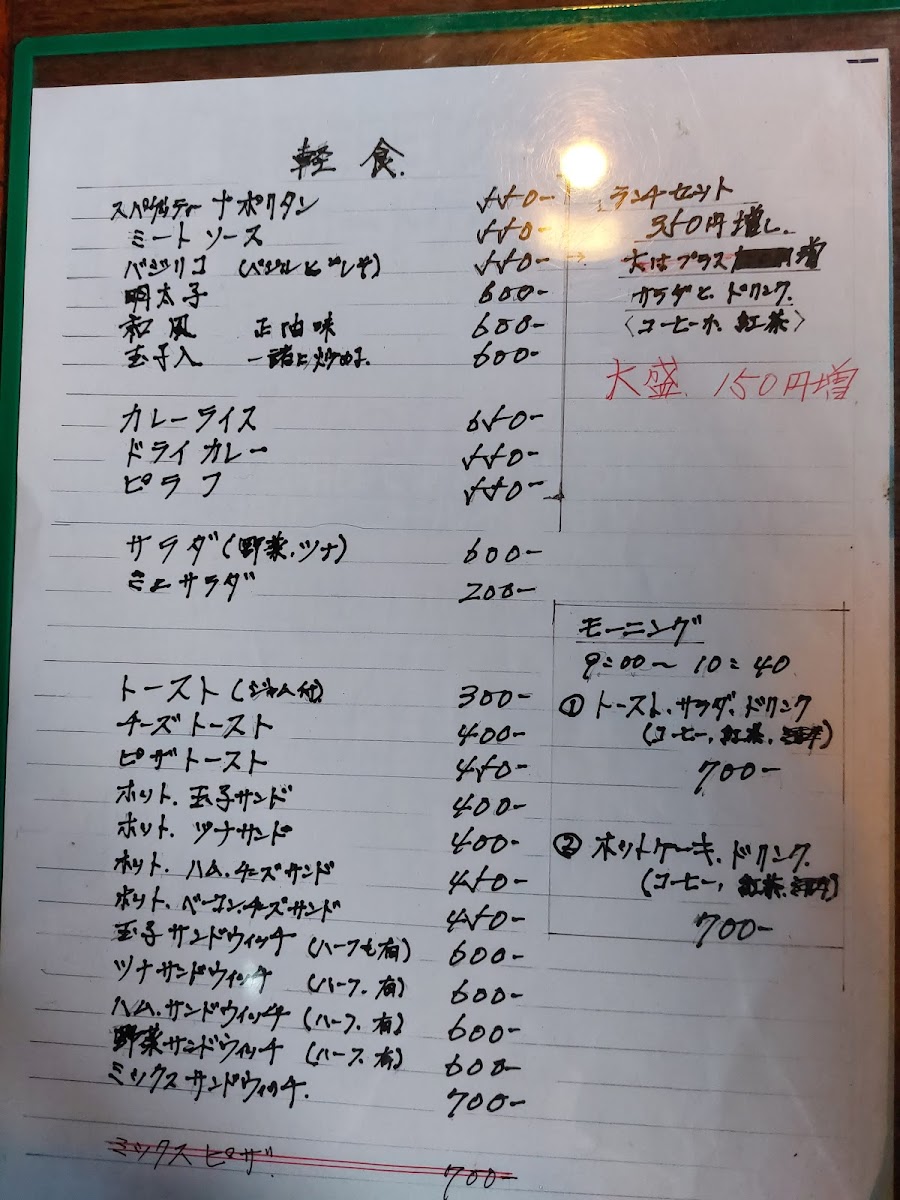 軽食.
スパゲッティー ナポリタン 550-
ミートソース 550-
バジリコ (バジルとドレサ) 550-
明太子 600-
和風 正油味 600-
玉子入 一諸に炒める 600-
カレーライス 650-
ドライカレー 550-
ピラフ 550-
サラダ(野菜.ツナ) 600-
ミニサラダ 200-
トースト(ジャム付) 300-
チーズトースト 400-
ピザトースト 450-
ホット.玉子サンド 400-
ホット.ツナサンド 400-
ホット.ハム.チーズサンド 450-
ホット.ベーコン.チーズサンド 450-
玉子サンドウィッチ (ハーフも有) 600-
ツナサンドウィッチ (ハーフ.有) 600-
ハム.サンドウィッチ (ハーフ.有) 600-
野菜サンドウィッチ (ハーフ.有) 600-
ミックスサンドウィッチ. 700-
ミックスピザ 700-
ランチセット
350円増し.
大はプラス 増
サラダと.ドリンク.
〈コーヒーか.紅茶〉
大盛.150円増
モーニング
9:00〜10:40
① トースト.サラダ.ドリンク
(コーヒー.紅茶.)
700-
② ホットケーキ.ドリンク.
(コーヒー,紅茶.)
700-